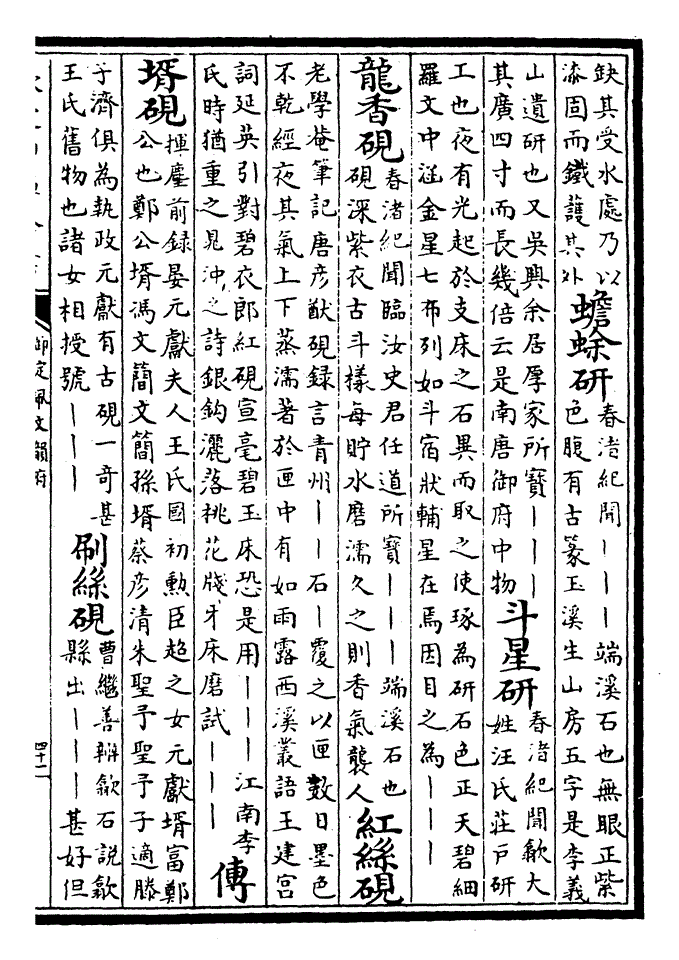 缺其受水處乃以
漆固而鐵護其外
蟾蜍研
春渚紀聞丨丨丨端溪石也無眼正紫
色腹有古篆玉溪生山房五字是李義
山遺研也又吳興余居厚家所寶丨丨丨
其廣四寸而長幾倍云是南唐御府中物
斗星研
春渚紀聞歙大
姓汪氏莊戶研
工也夜有光起於支床之石異而取之使琢為研石色正天碧細
羅文中涵金星七布列如斗宿狀輔星在焉因目之為丨丨丨
龍香硯
春渚紀聞臨汝史君任道所寶丨丨丨端溪石也
硯深紫衣古斗樣每貯水磨濡久之則香氣襲人
紅絲硯
老學庵筆記唐彥猷硯録言青州丨丨石丨覆之以匣數日墨色
不乾經夜其氣上下蒸濡著於匣中有如雨露西溪叢語王建宮
詞延英引對碧衣郎紅硯宣毫碧玉床恐是用丨丨丨丨江南李
氏時猶重之晁沖之詩銀鈎灑落桃花牋牙床磨試丨丨丨
傳
壻硯
揮麈前録晏元獻夫人王氏國初勲臣超之女元獻壻富鄭
公也鄭公壻馮文簡文簡孫壻蔡彥清朱聖予聖予子適滕
子濟俱為執政元獻有古硯一奇甚
王氏舊物也諸女相授號丨丨丨
刷絲硯
曹繼善辨歙石說歙
縣出丨丨丨丨甚好但
御定佩文韻府
四十二